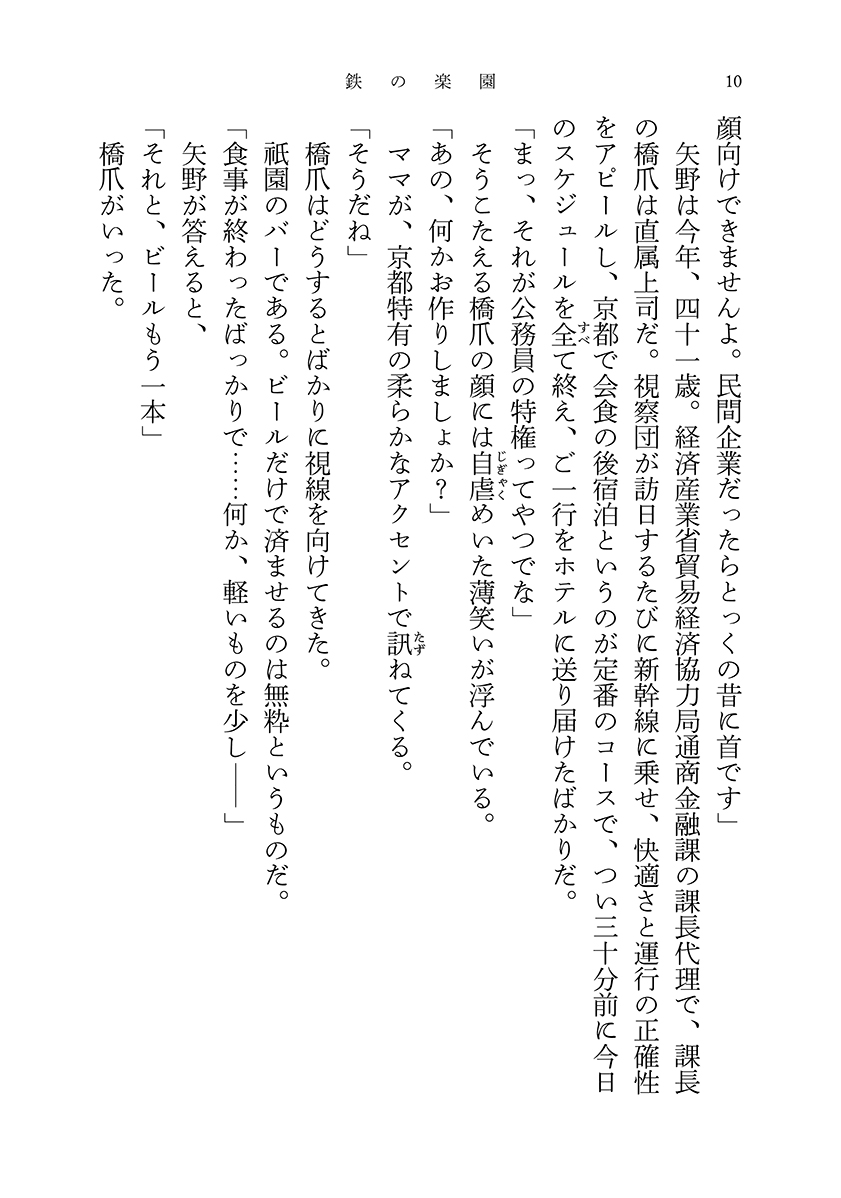 鉄の楽園
10
顔向けできませんよ。民間企業だったらとっくの昔に首です」
矢野は今年、四十一歳。経済産業省貿易経済協力局通商金融課の課長代理で、課長
の橋爪は直属上司だ。視察団が訪日するたびに新幹線に乗せ、快適さと運行の正確性
をアピールし、京都で会食の後宿泊というのが定番のコースで、つい三十分前に今日
のスケジュールを全て終え、ご一行をホテルに送り届けたばかりだ。
すべ
「まっ、それが公務員の特権ってやつでな」
そうこたえる橋爪の顔には自虐めいた薄笑いが浮んでいる。
じぎゃく
「あの、何かお作りしましょか？」
ママが、京都特有の柔らかなアクセントで訊ねてくる。
たず
「そうだね」
橋爪はどうするとばかりに視線を向けてきた。
祇園のバーである。ビールだけで済ませるのは無粋というものだ。
「食事が終わったばっかりで……何か、軽いものを少し――」
矢野が答えると、
「それと、ビールもう一本」
橋爪がいった。